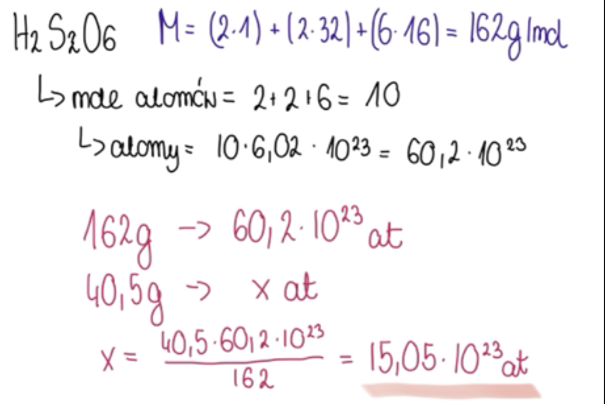 H₂S₂O₆ M = (2·1) + (2·32) + (6·16) = 162g/mol
↳ mole atomów = 2+2+6 = 10
↳ atomy = 10·6,02·10²³ = 60,2·10²³
162g → 60,2·10²³ at
40,5g → x at
x = 40,5·60,2·10²³ / 162 = 15,05·10²³ at